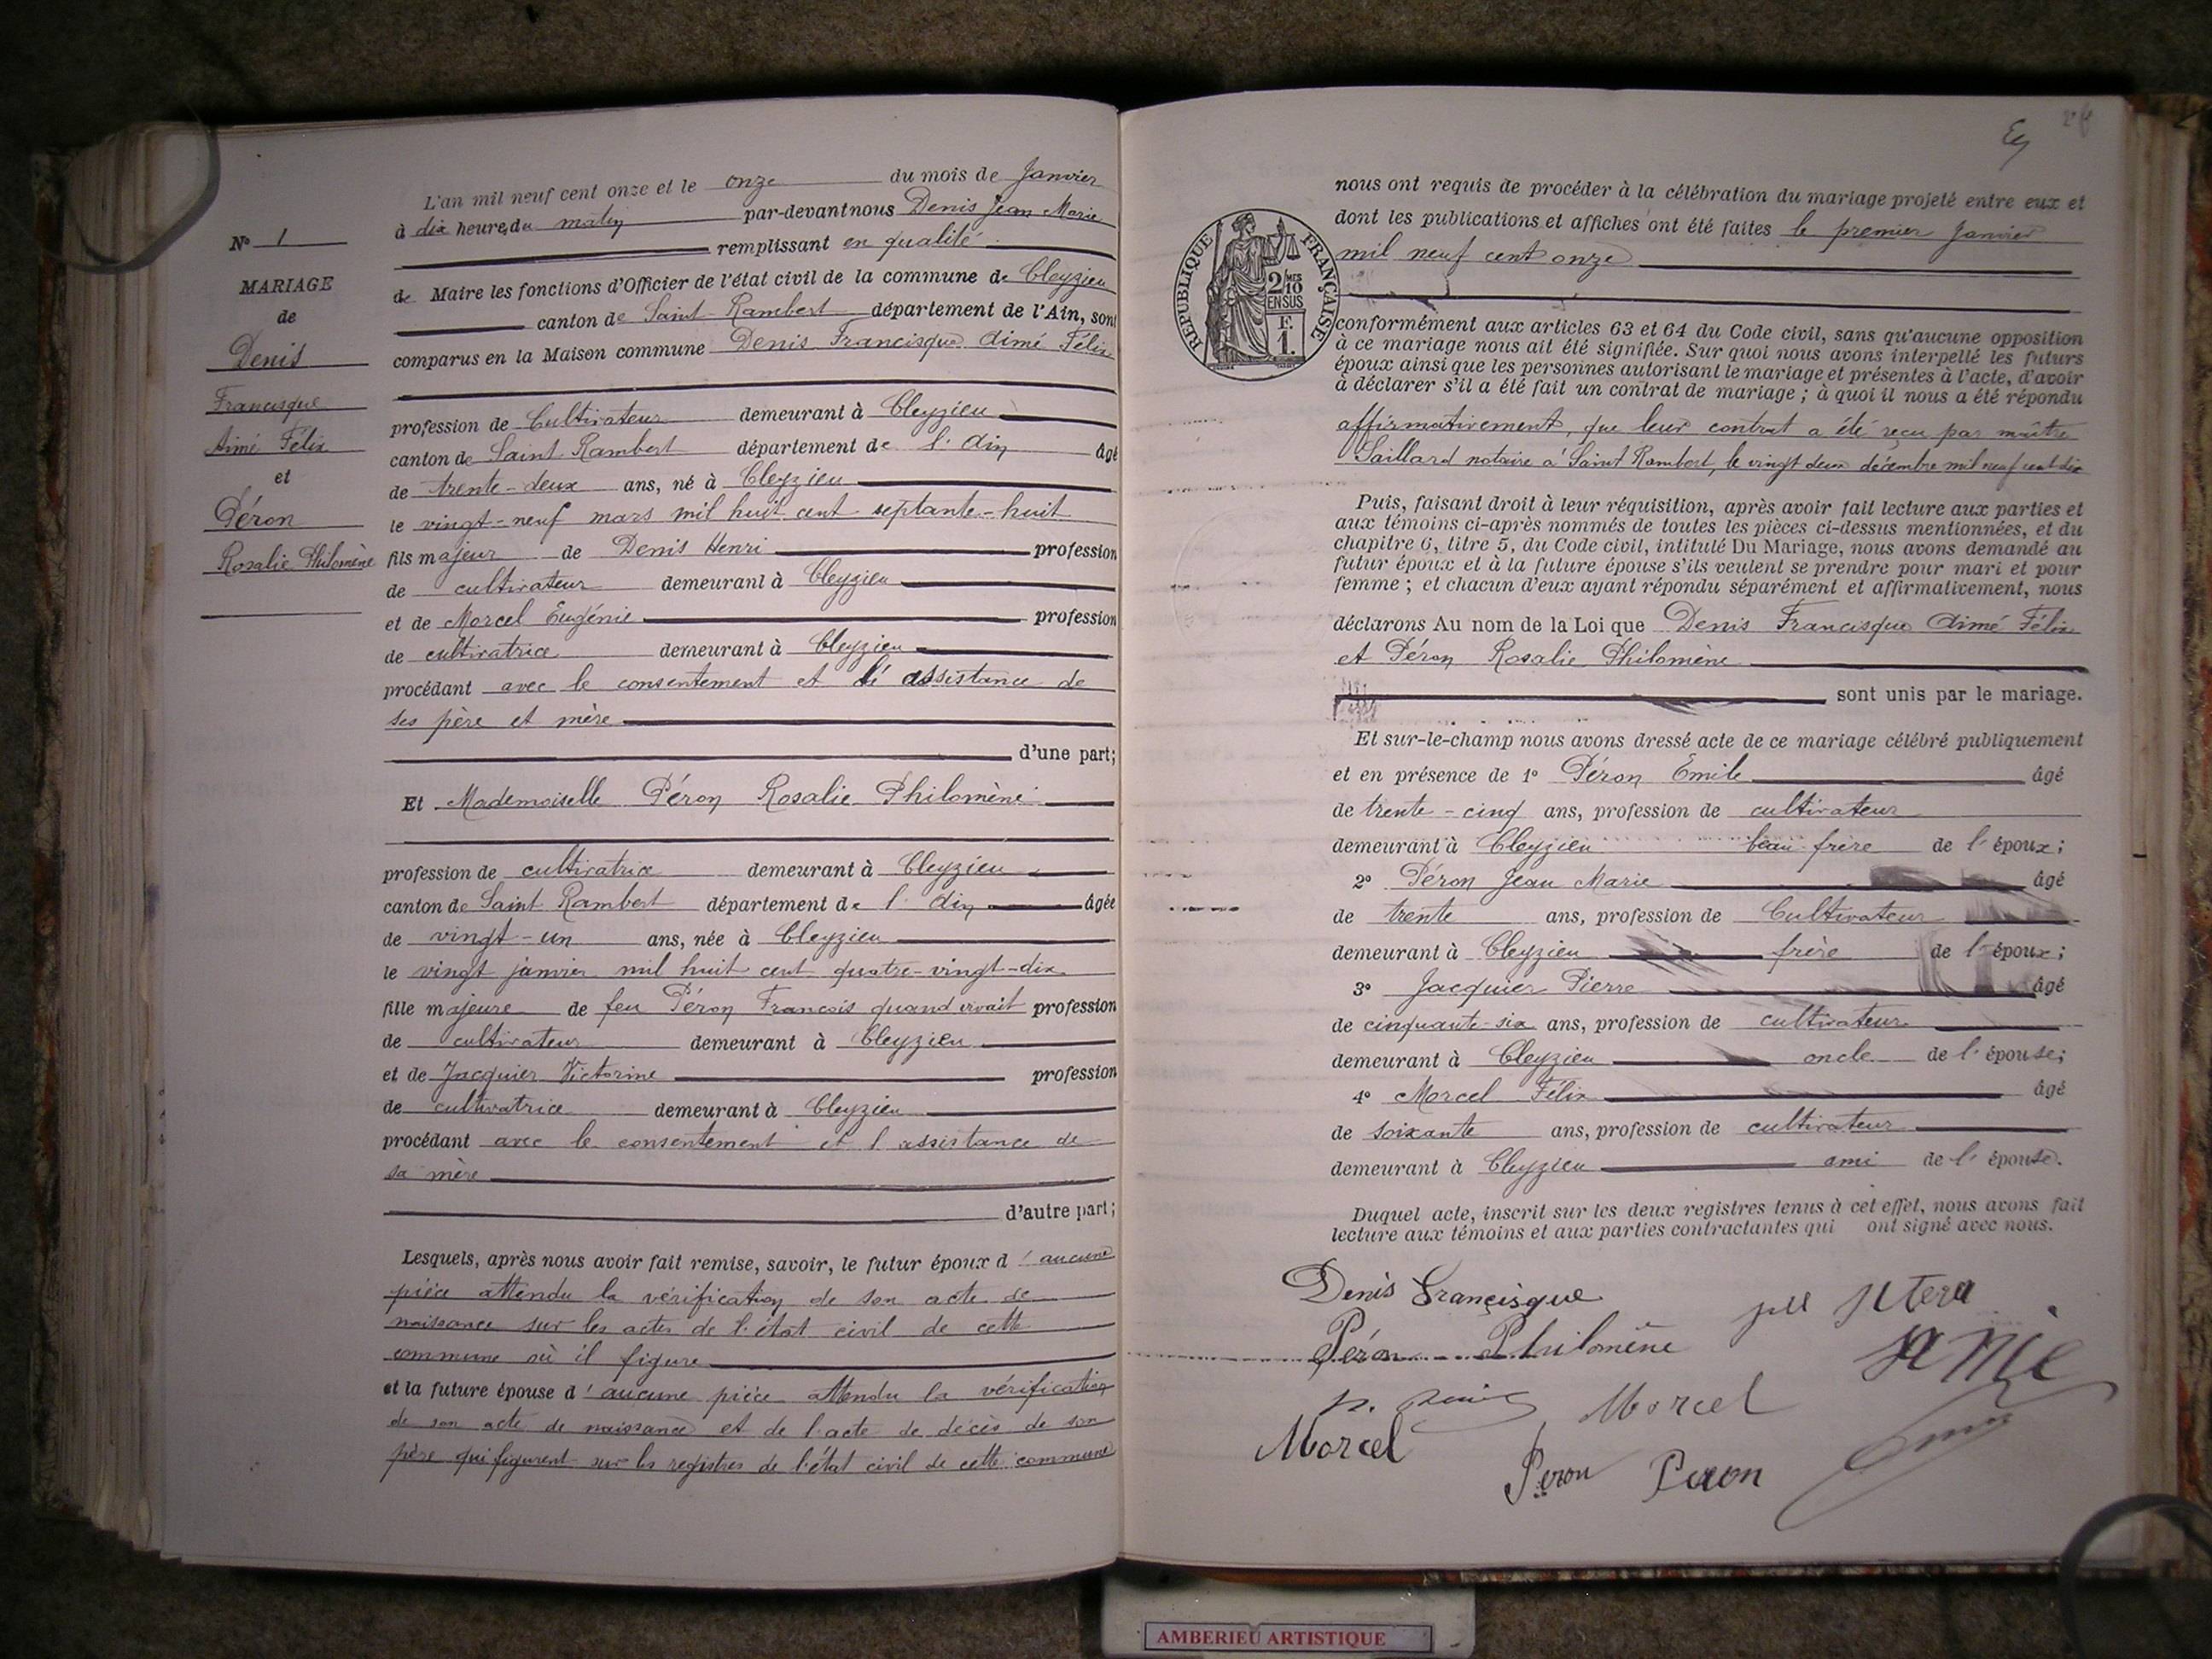 L'an mil neuf cent onze et le onze du mois de Janvier
à dix heures du matin par-devant nous Denis Jean Marie
remplissant en qualité
de Maire les fonctions d'Officier de l'état civil de la commune de Cleyzieu
canton de Saint Rambert département de l'Ain, sont
comparus en la Maison commune Denis Francisque Aimé Félix
profession de Cultivateur demeurant à Cleyzieu
canton de Saint Rambert département de l'Ain âgé
de trente-deux ans, né à Cleyzieu
le vingt-neuf mars mil huit cent septante-huit
fils majeur de Denis Henri profession
de cultivateur demeurant à Cleyzieu
et de Morcel Eugénie profession
de cultivatrice demeurant à Cleyzieu
procédant avec le consentement et l'assistance de
ses père et mère
d'une part;
Et Mademoiselle Péron Rosalie Philomène
profession de cultivatrice demeurant à Cleyzieu
canton de Saint Rambert département de l'Ain âgée
de vingt-un ans, née à Cleyzieu
le vingt janvier mil huit cent quatre-vingt-dix
fille majeure de feu Péron François quand vivait profession
de cultivateur demeurant à Cleyzieu
et de Jacquier Victorine profession
de cultivatrice demeurant à Cleyzieu
procédant avec le consentement et l'assistance de
sa mère
d'autre part;
Lesquels, après nous avoir fait remise, savoir, le futur époux d'aucune
pièce attendu la vérification de son acte de
naissance sur les actes de l'état civil de cette
commune où il figure
et la future épouse d'aucune pièce attendu la vérification
de son acte de naissance et de l'acte de décès de son
père qui figurent sur les registres de l'état civil de cette commune
N° 1
MARIAGE
de
Denis
Francisque
Aimé Félix
et
Péron
Rosalie Philomène
nous ont requis de procéder à la célébration du mariage projeté entre eux et
dont les publications et affiches ont été faites le premier Janvier
mil neuf cent onze
REPUBLIQUE FRANÇAISE
2/10 MES
EN SUS
F.
1.
conformément aux articles 63 et 64 du Code civil, sans qu'aucune opposition
à ce mariage nous ait été signifiée. Sur quoi nous avons interpellé les futurs
époux ainsi que les personnes autorisant le mariage et présentes à l'acte, d'avoir
à déclarer s'il a été fait un contrat de mariage; à quoi il nous a été répondu
affirmativement, que leur contrat a été reçu par maître
Saillard notaire à Saint Rambert, le vingt deux décembre mil neuf cent dix
Puis, faisant droit à leur réquisition, après avoir fait lecture aux parties et
aux témoins ci-après nommés de toutes les pièces ci-dessus mentionnées, et du
chapitre 6, titre 5, du Code civil, intitulé Du Mariage, nous avons demandé au
futur époux et à la future épouse s'ils veulent se prendre pour mari et pour
femme; et chacun d'eux ayant répondu séparément et affirmativement, nous
déclarons Au nom de la Loi que Denis Francisque Aimé Félix
et Péron Rosalie Philomène
sont unis par le mariage.
Et sur-le-champ nous avons dressé acte de ce mariage célébré publiquement
et en présence de 1° Péron Emile âgé
de trente-cinq ans, profession de cultivateur
demeurant à Cleyzieu beau-frère de l'époux;
2° Péron Jean Marie âgé
de trente ans, profession de Cultivateur
demeurant à Cleyzieu frère de l'époux;
3° Jacquier Pierre âgé
de cinquante-six ans, profession de cultivateur
demeurant à Cleyzieu oncle de l'épouse;
4° Morcel Félix âgé
de soixante ans, profession de cultivateur
demeurant à Cleyzieu ami de l'épouse.
Duquel acte, inscrit sur les deux registres tenus à cet effet, nous avons fait
lecture aux témoins et aux parties contractantes qui ont signé avec nous.
Denis Francisque
Péron Philomène
Morcel
Morcel
Peron Peron
AMBERIEU ARTISTIQUE